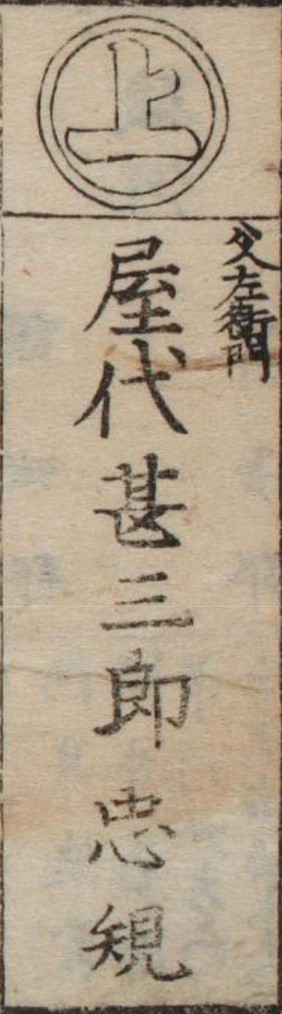 上
父左衛門
屋代甚三郎忠規